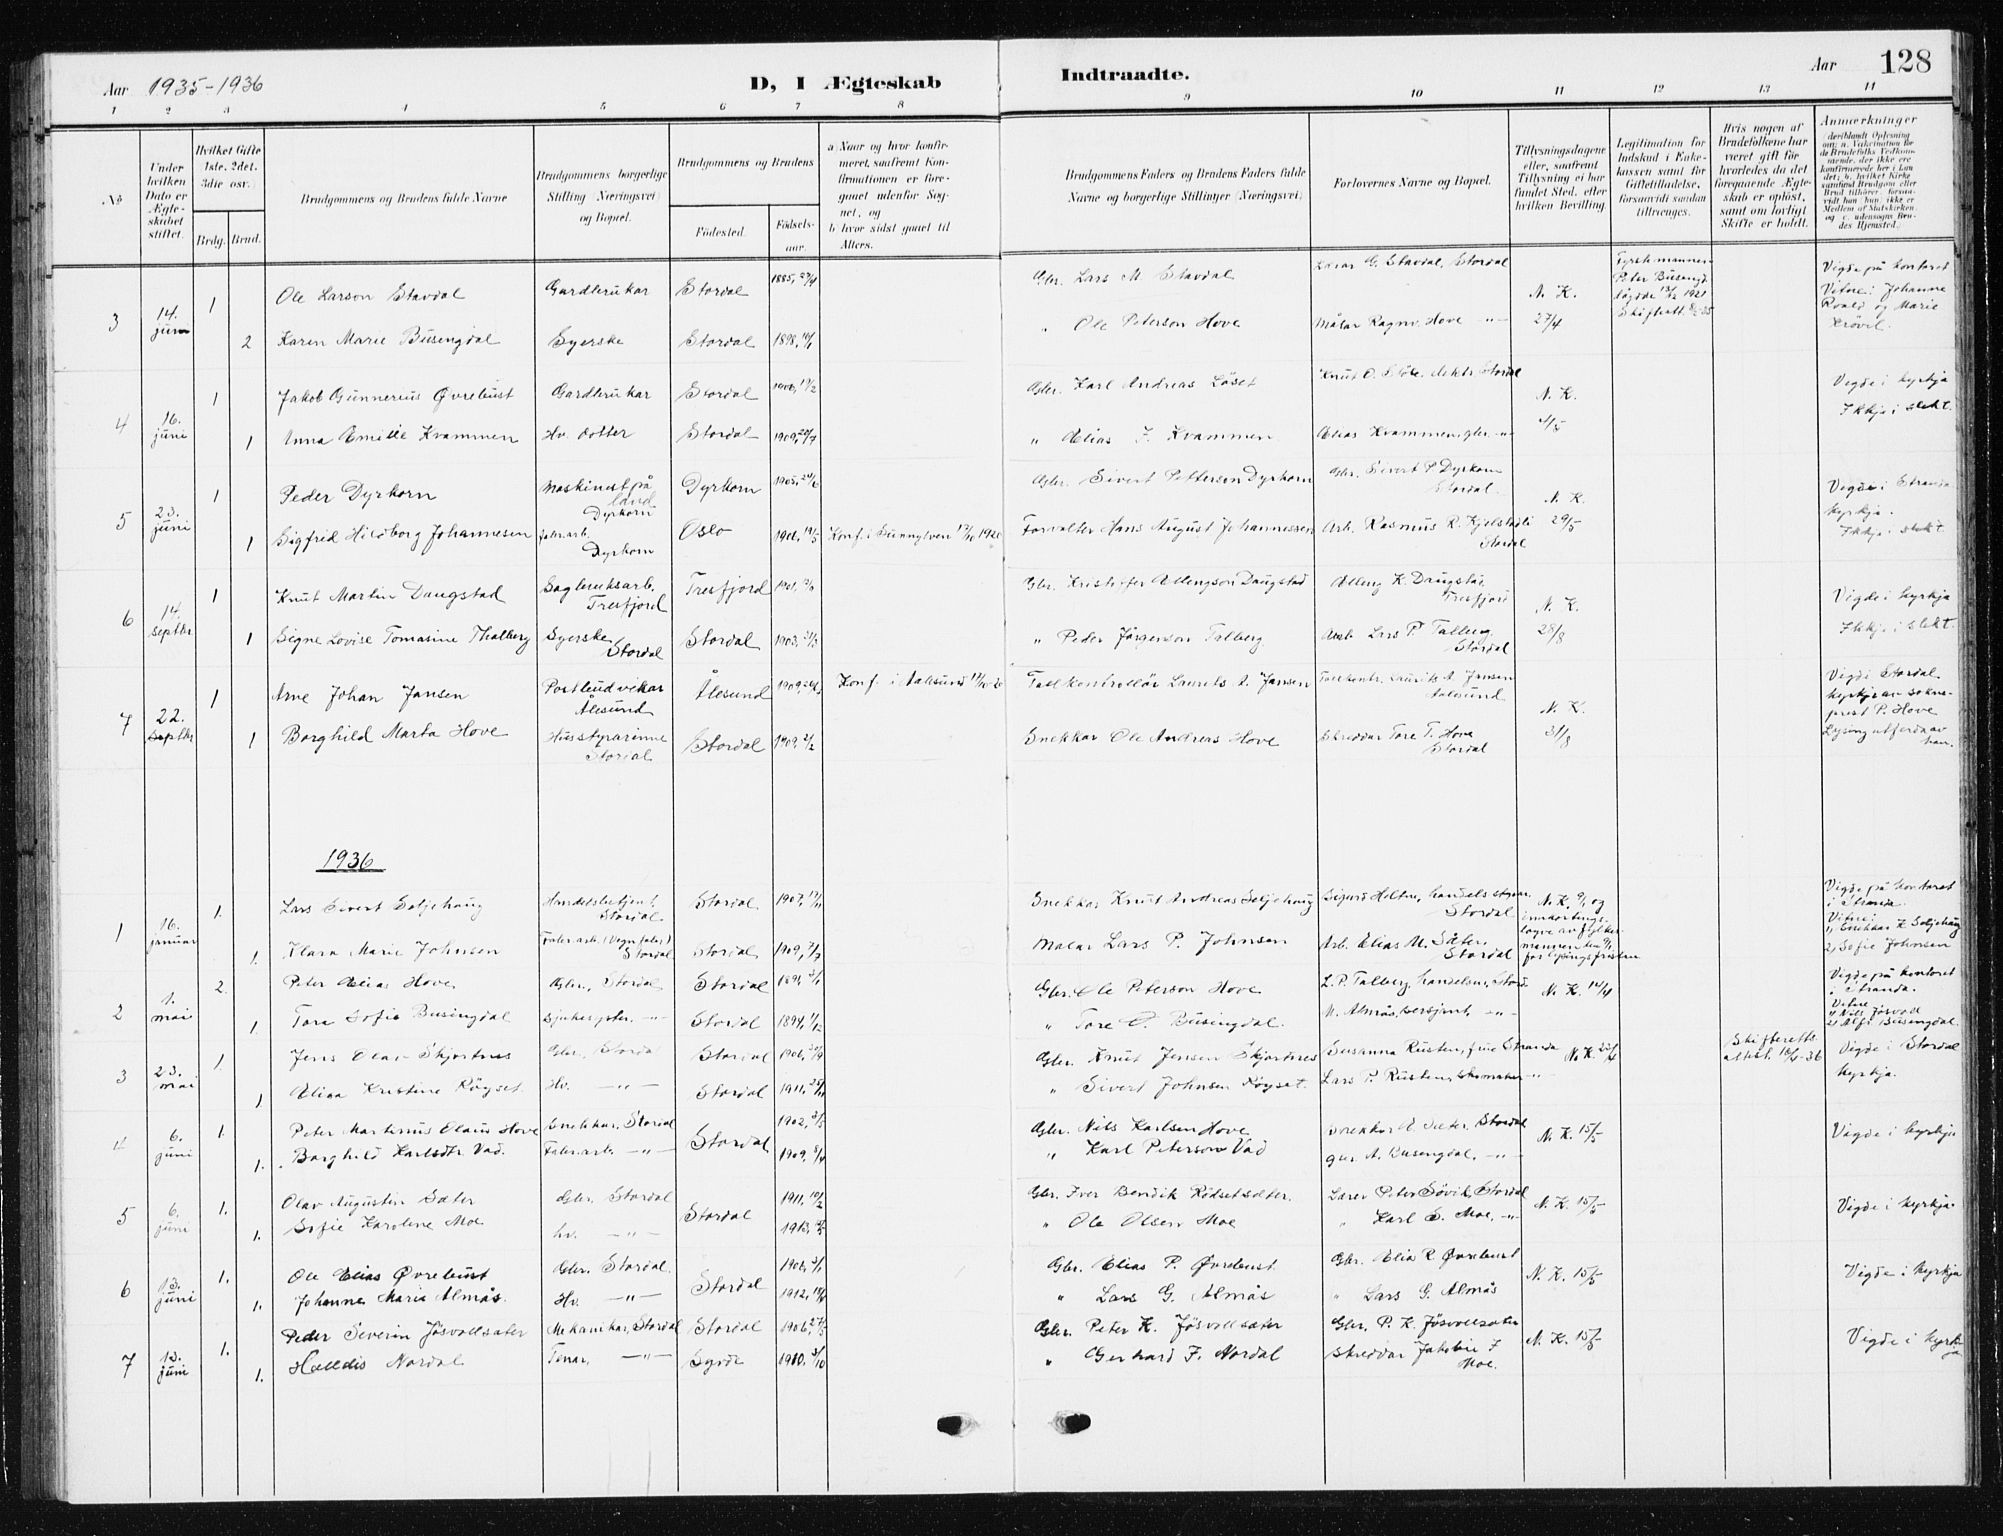 Aar 1935-1936 D, I Ægteskab Indtraadte. Aar 128
1 2 3 4 5 6 7 8 9 10 11 12 13 14
No
Under hvilken Dato er Ægteskabet stiftet.
Hvilket Gifte 1ste, 2det, 3die osv.
Brdg. Brud.
Brudgommens og Brudens fulde Navne
Brudgommens borgerlige Stilling (Næringsvei) og Bopæl.
Brudgommens og Brudens
Fødested. Fødsels-aar.
a) Naar og hvor konfirmeret, saafremt Konfirmationen er foregaaet udenfor Sognet, og
b) hvor sidst gaaet til Alters.
Brudgommens Faders og Brudens Faders fulde Navne og borgerlige Stillinger (Næringsvei)
Forlovernes Navne og Bopæl.
Tillysningsdagene eller, saafremt Tillysning ei har fundet Sted, efter hvilken Bevilling.
Legitimation for Indskud i Enkekassen samt for Giftetilladelse, forsaavidt saadan tiltrænges.
Hvis nogen af Brudefolkene har været gift før hvorledes da det foregaaende Ægteskab er opløst, samt om lovligt Skifte er holdt.
Anmærkninger
3 14. juni 1 Ole Larson Stavdal Gardbrukar Stordal 1885, 27/4 Gbr. Lars M. Stavdal Lærar G. Stavdal, Stordal N. K. 27/4 Fyrstemannen Peter Busengd. døydde 13/12 1921 Vigde på kontoret Vitne: Johanne Roald og Marie Krövil.
2 Karen Marie Busengdal Syerske Stordal 1898, " Ole Peterson Hove Målar Ragnv. Hove —"—
4 16. juni 1 Jakob Gunnerius Øvrebust Gardbrukar Stordal Gbr. Karl Andreas Löset N. K. 4/5 Vigde i kyrkja Ikkje i slekt.
1 Anna Emilie Kvammen Hv. dotter Stordal 1909, 20/7 " Elias J. Kvammen Elias Kvammen, gbr. —"—
5 23. juni 1 Peder Dyrkorn Maskinist på land Dyrkorn Dyrkorn 1905, 24/6 Gbr. Sivert Petterson Dyrkorn Gbr. Sivert P Dyrkorn Stordal. N. K. 29/5 Vigde i Stranda kyrkja. Ikkje i slekt.
1 Sigfrid Hildborg Johannesen Fabr.arb. Dyrkorn Oslo Konf. i Sunnylven Forvalter Hans August Johannessen Arb. Rasmus R. Kjelstadli Stordal
6 14. septbr 1 Knut Martin Daugstad Sagbruksarb. Tresfjord Tresfjord Gbr. Kristofer Ellengson Daugstad Elling K. Daugstad, Tresfjord N. K. 28/8 Vigde i kyrkja Ikkje i slekt.
1 Signe Lovise Tomasine Thalberg Syerske Stordal Stordal 1903, " Peder Jörgenson Talberg. Arb. Lars P. Talberg. Stordal
7 22. septbr 1 Arne Johan Jansen Postbudvikar Ålesund Ålesund 1909, Konf. i Aalesund Tollkontrollör Laurits A. Jansen Tollkontr. Laurits A. Jansen Aalesund N. K. 31/8 Vigd i Stordal kyrkje av sokneprest P. Hove Lysing utferda av han.
1 Borghild Marta Hove Husstyrarinne Stordal Stordal 1909, 2/2 Snekkar Ole Andreas Hove Skreddar Tore T. Hove Stordal
1936
1 16. januar 1. Lars Sivert Seljehaug Handelsbetjent, Stordal Stordal 1907, Snekkar Knut Andreas Seljehaug Sigurd Holtn, handelsstyrar Stordal N. K. 9/1 og innkortingsløyve av fylkesmannen for lysingsfristen Vigde på kontoret i Stranda. Vitne: 1) Snekkar K Seljehaug 2) Sofie Johnsen
1. Klara Marie Johnsen Fabr.arb. (Vognfabr.) Stordal Stordal 1909, 7/7 Målar Lars P. Johnsen Arb. Elias M. Säter, Stordal
2 1. mai 2. Peter Elias Hove Gbr., Stordal Stordal Gbr. Ole Peterson Hove L. P. Talberg, handelsm., Stord. N. K. 14/4 Vigde på kontoret i Stranda. Vitne 1) Nils Jösvoll 2) Alfr Busengdal.
1. Tora Sofie Busingdal Sjukesyster. —"— Stordal 1894, 11/12 " Tore O. Busingdal. M. Almås, bersjent, —"—
3 23. mai 1. Jens Olav Skjortnes Gbr., Stordal Stordal Gbr. Knut Jensen Skjortnes Susanna Rusten, frue Stranda N. K. 23/4 Skifteretts attest. Vigde i Stordal kyrkja.
1 Elisa Kristine Røyset. Hv. —"— Stordal 1911, " Sivert Johnsen Røyset. Lars P. Rusten, skomaker —"—
4 6. juni 1. Peter Martinus Olaus Hove Snekkar, Stordal Stordal 1902, 3/5 Gbr. Nils Karlsen Hove Snekkar A Säter, Stordal N. K. 15/5 Vigde i kyrkja
1. Borghild Karlsdtr. Vad. Fabr.arb. —"— 1909, 8/4 " Karl Peterson Vad A. Busengdal, —"—
5 6. juni 1. Olav Augustin Sæter Gbr. Stordal Stordal 1911, 10/2 Gbr. Iver Bendik Rödsetsæter. Lærer Peter Søvik, Stordal N. K. 15/5 Vigde i kyrkja.
1. Sofie Karoline Moe hv. —"— 1913, " Ole Olsen Moe " Karl E. Moe, —"—
6 13. juni 1. Ole Elias Øvrebust Gbr. Stordal. Stordal Gbr. Elias P. Øvrebust Gbr. Elia P. Øvrebust N. K. 15/5 Vigde i kyrkja
1. Johanne Maria Almås. Hv. —"— 1912, " Lars G. Almås " Lars G. Almås
7 13. juni 1. Peder Severin Jösvollsæter Mekanikar, Stordal Stordal 1906, 27/5 Gbr. Peter K. Jösvollsæter Gbr. P. K. Jösvollsæter N. K. 15/5 Vigde i kyrkja
1. Halldis Nordal Tenar, —"— Syvde 1910, 3/10 " Gerhard F. Nordal Skreddar Jakobie F Moe.